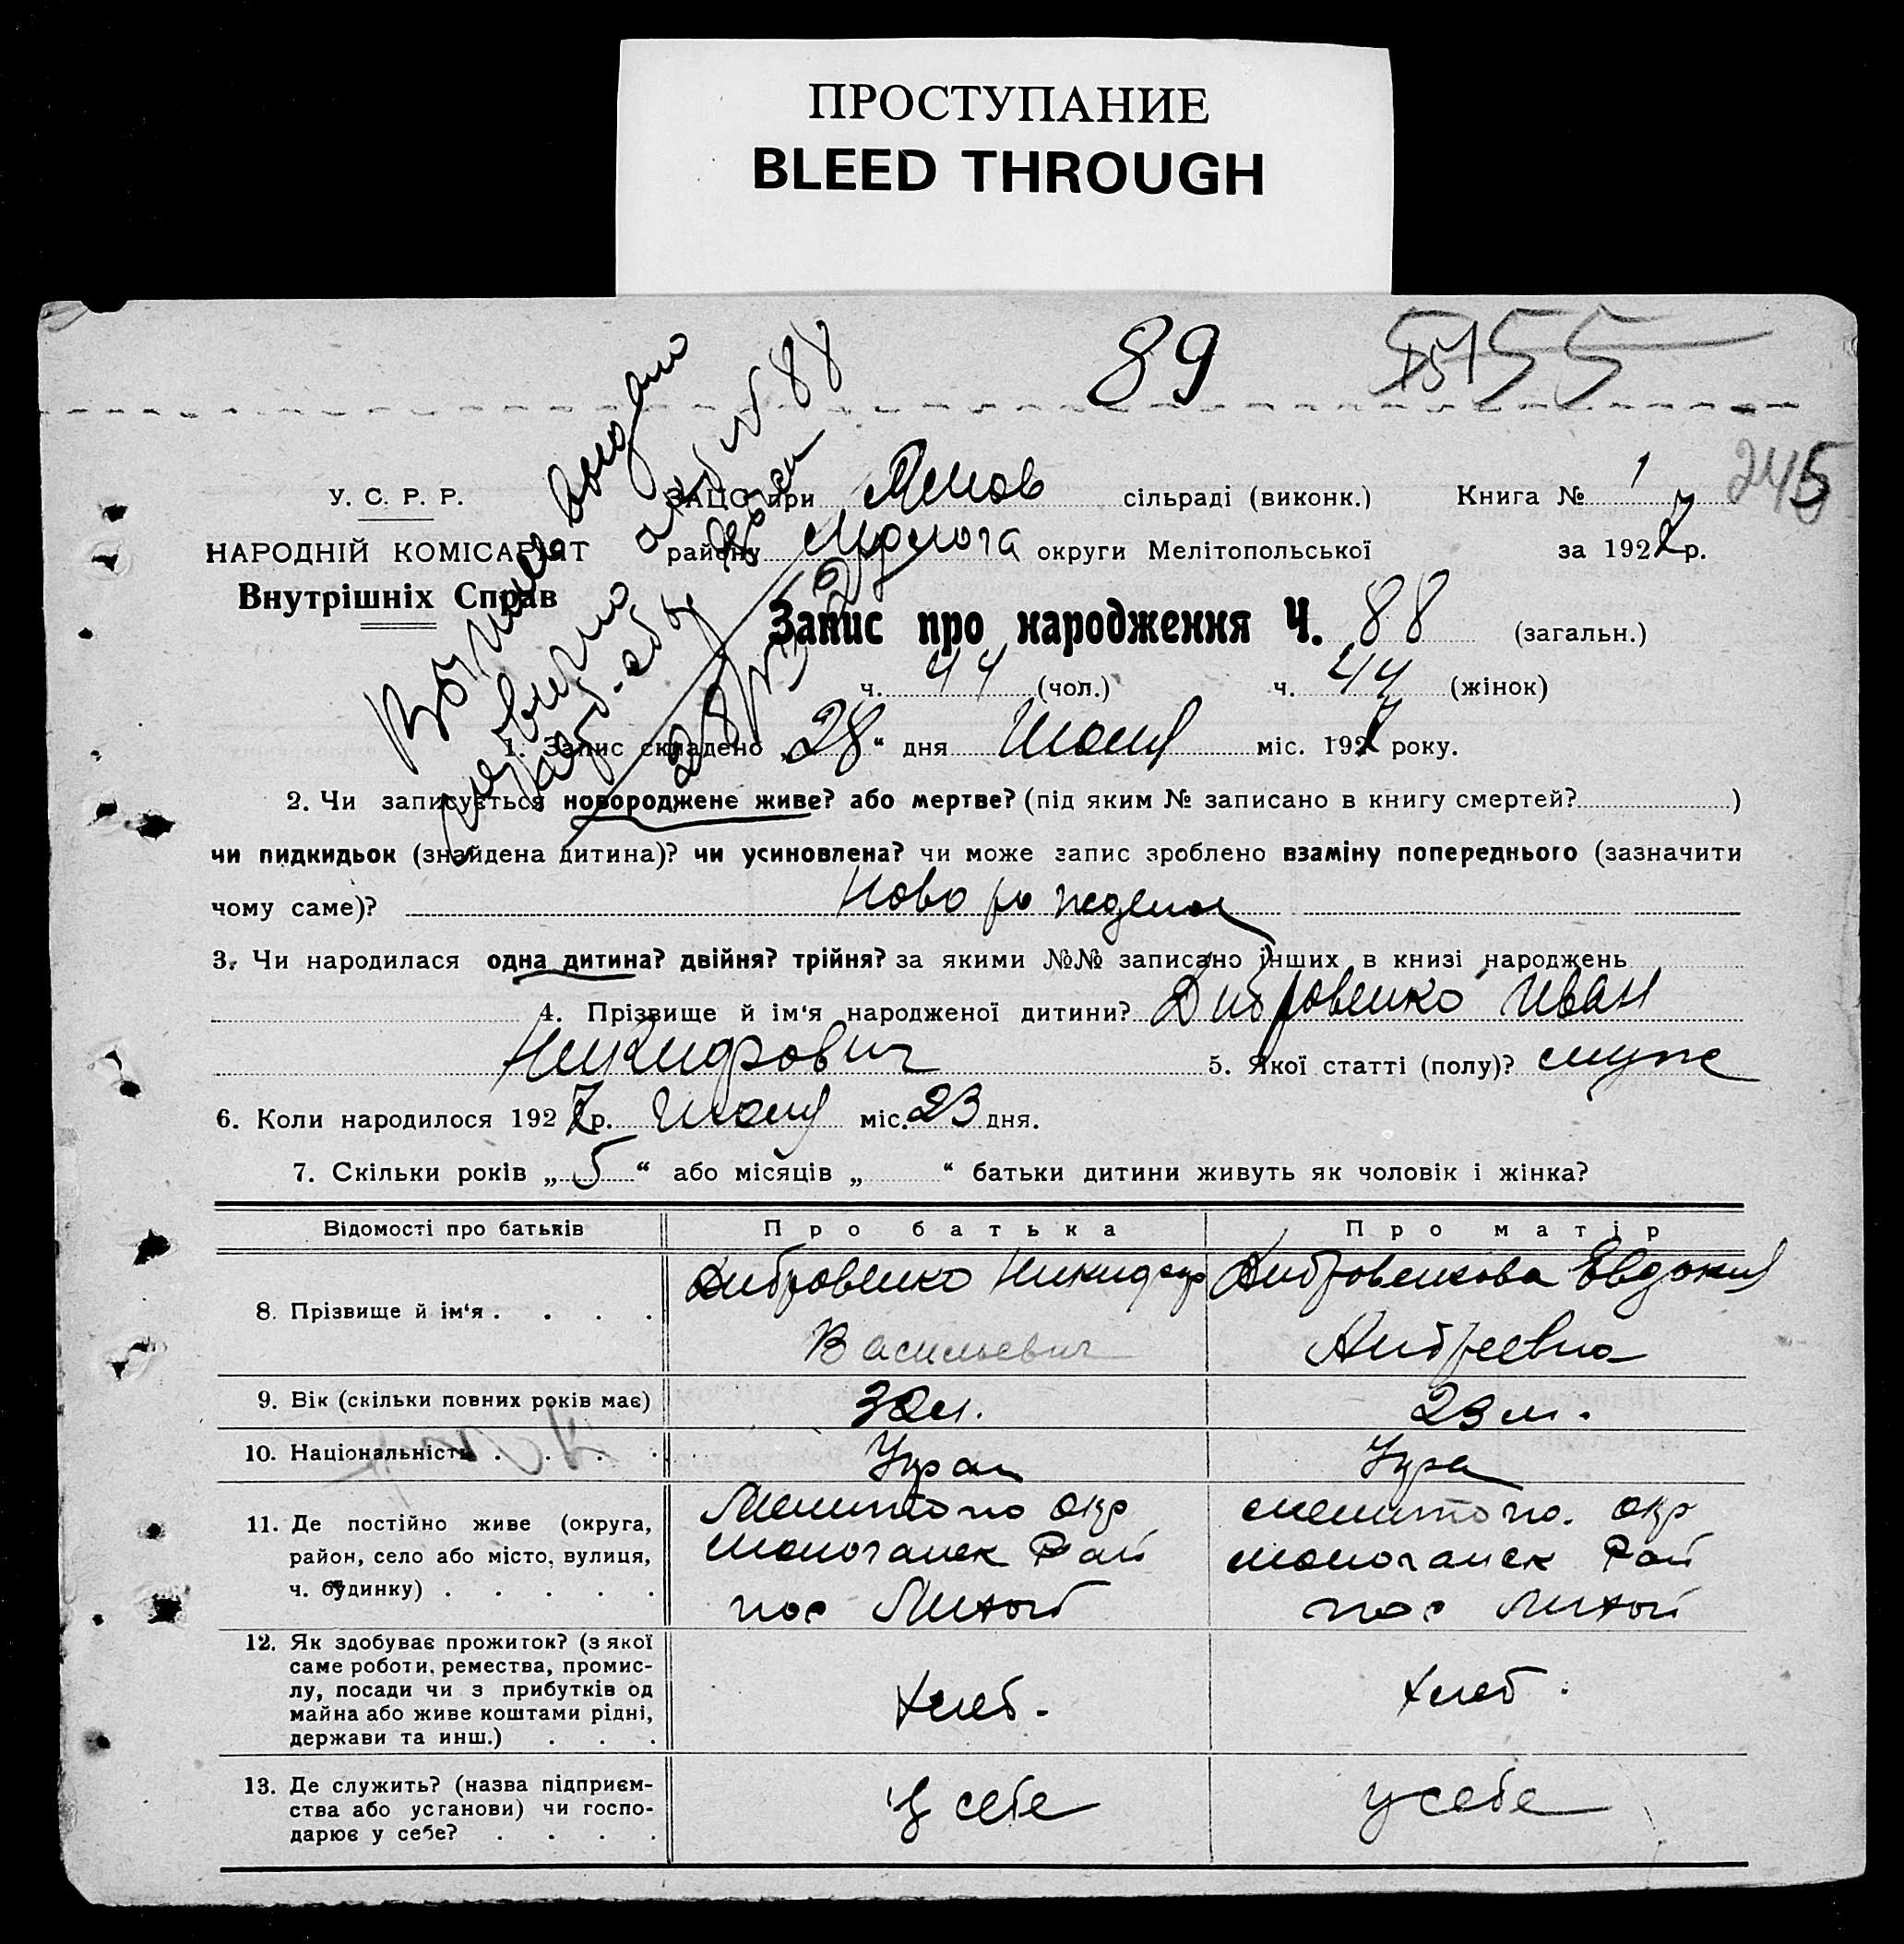 ПРОСТУПАНИЕ
BLEED THROUGH
89
245
У. С. Р. Р.
НАРОДНІЙ КОМІСАРІЯТ
Внутрішніх Справ
ЗАЦС при сільраді (виконк.) Книга № 1
району округи Мелітопольської за 1927 р.
Запис про народження Ч. 88 (загальн.)
ч. 44 (чол.) ч. 44 (жінок)
1. Запис складено „28“ дня Июня міс. 1927 року.
2. Чи записується новороджене живе? або мертве? (під яким № записано в книгу смертей? )
чи пидкидьок (знайдена дитина)? чи усиновлена? чи може запис зроблено взаміну попереднього (зазначити
чому саме)?
3. Чи народилася одна дитина? двійня? трійня? за якими №№ записано інших в книзі народжень
4. Прізвище й ім‘я народженої дитини? Дибровенко Иван
Никифрович 5. Якої статті (полу)? муж
6. Коли народилося 1927 р. Июня міс. 23 дня.
7. Скільки років „5“ або місяців „ “ батьки дитини живуть як чоловік і жінка?
Відомості про батьків Про батька Про матір
8. Прізвище й ім‘я . . . . Дибровенко Никифор Дибровенкова Евдокия
Васильевич Андреевна
9. Вік (скільки повних років має) 32 л. 23 л.
10. Національність . . . . Укра Укра
11. Де постійно живе (округа,
район, село або місто, вулиця,
ч. будинку) . . . . .
Мелитопо окр мелитопо. окр
рай рай
пос пос
12. Як здобуває прожиток? (з якої
саме роботи, ремества, промис-
лу, посади чи з прибутків од
майна або живе коштами рідні,
держави та инш.) . . .
хлеб. хлеб.
13. Де служить? (назва підприєм-
ства або установи) чи госпо-
дарює у себе? . . . .
у себе у себе